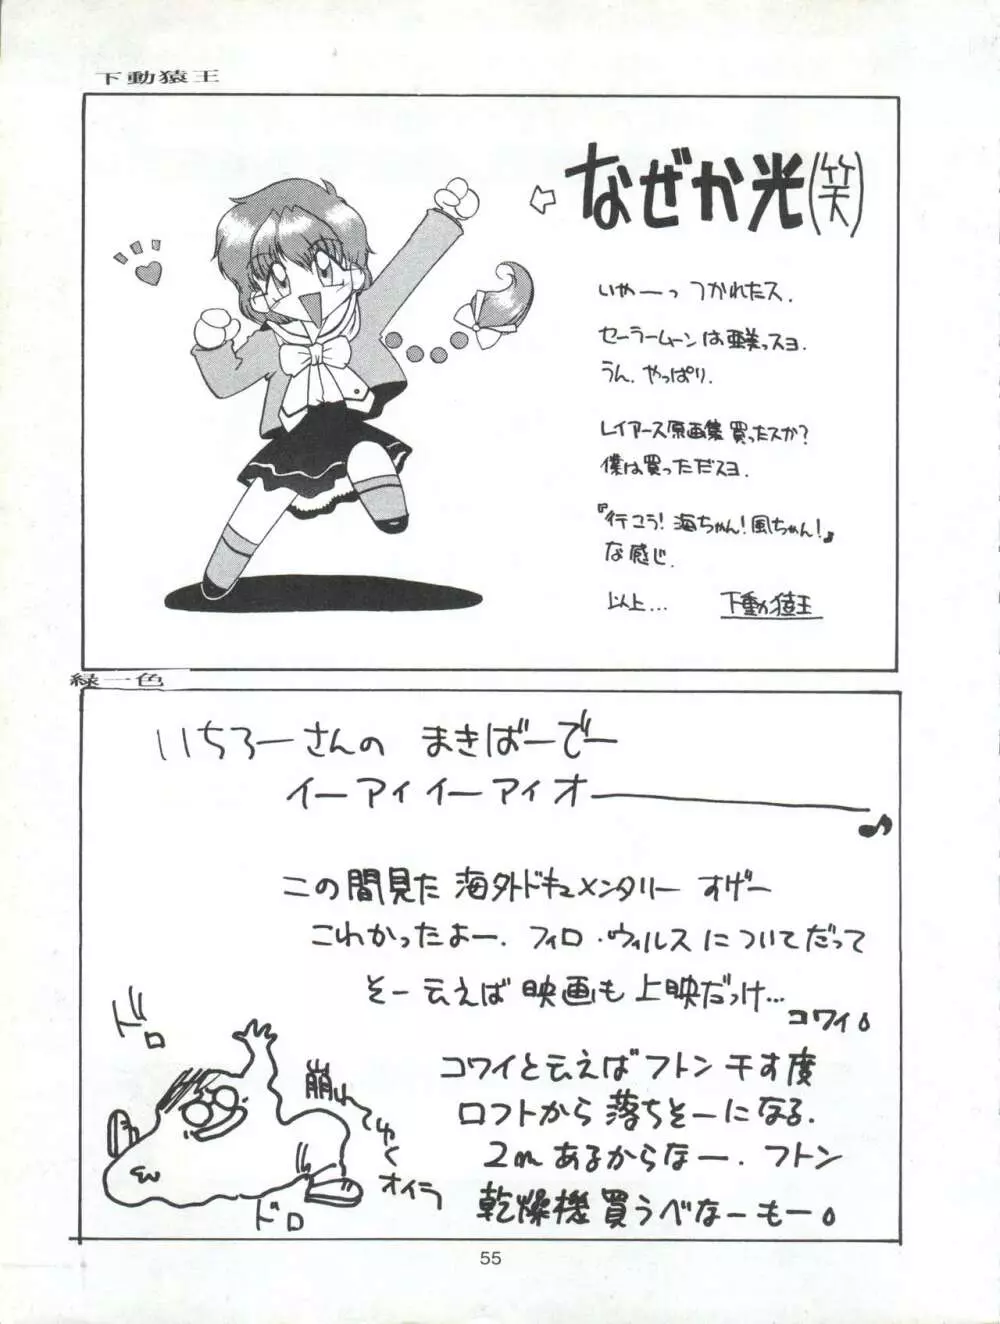 下動猿王
なぜか光(笑)
いやーっ つかれたス.
セーラームーンは亜美っスヨ.
うん. やっぱり.
レイアース原画集買ったスか?
僕は買っただスヨ.
『行こう! 海ちゃん! 風ちゃん!』♪
な感じ.
以上... 下動猿王
緑一色
いちろーさんの まきばーでー
イーアイイーアイオ――♪
この間見た 海外ドキュメンタリー すげー
こわかったよー. フィロ・ウィルスについてだって
そー云えば 映画も 上映だっけ...
コワイ。
コワイと云えば フトン干す度
ロフトから 落ちそーになる.
2mあるからなー. フトン
乾燥機買うべなーもー。
ドロ
崩れてゆく
オイラ
ドロ
55